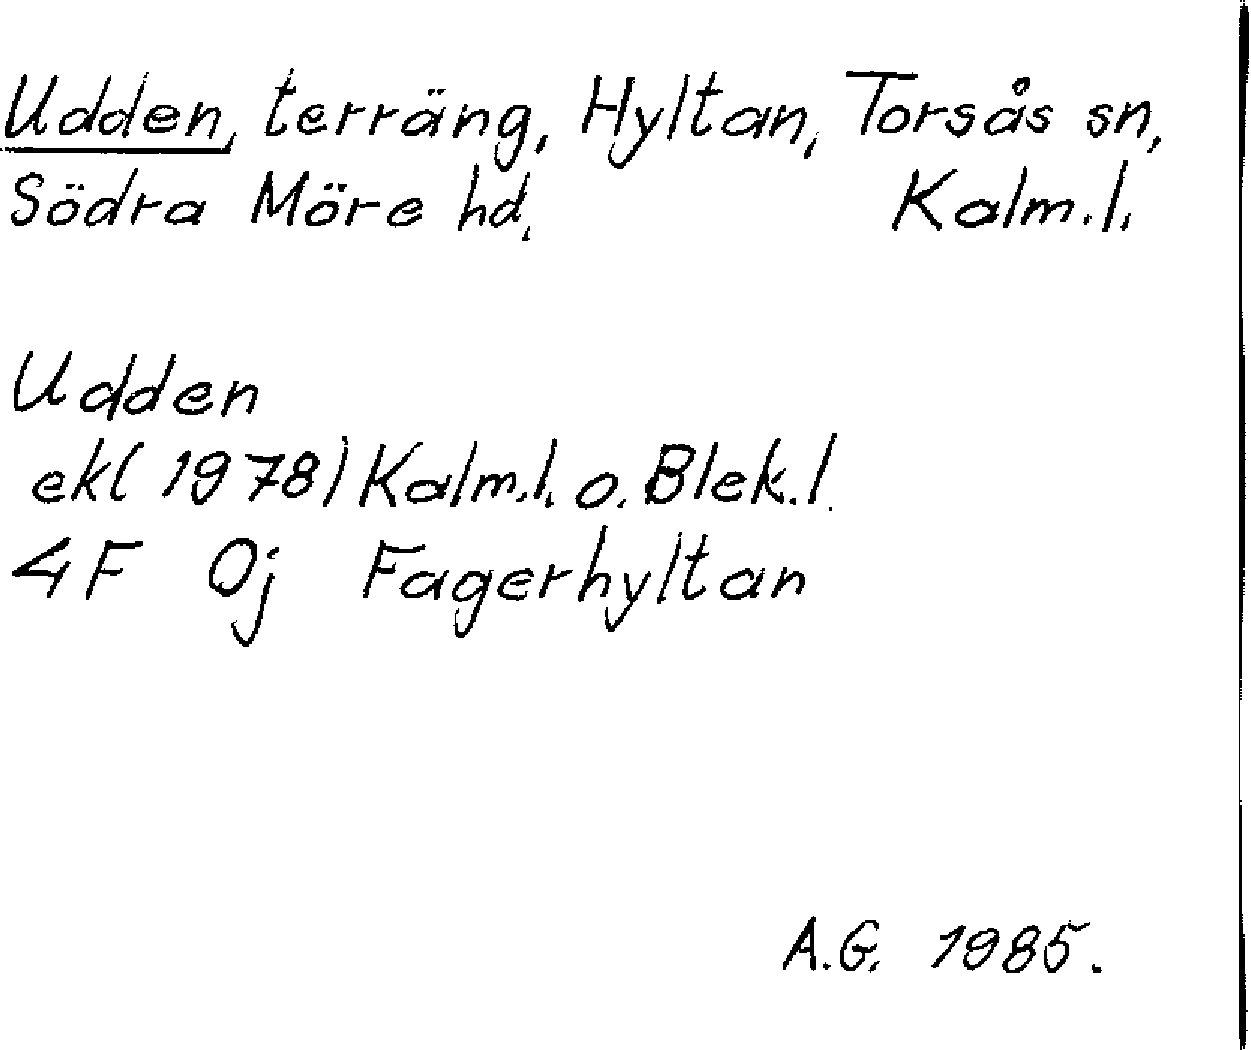 Udden, terräng, Hyltan, Torsås sn,
Södra Möre hd. Kalm.l.
Udden
ek(1978) Kalm.l. o. Blek.l.
4F 0j Fagerhyltan
A.G. 1985.